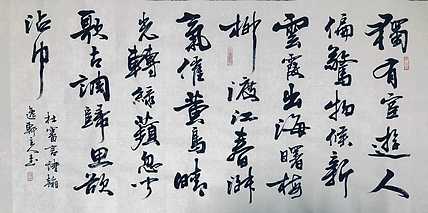 獨有宦遊人
偏驚物候新
雲霞出海曙梅
柳渡江春淑
氣催黃鳥晴
光轉綠蘋忽聞
歌古調歸思欲
沾巾
杜審言詩
主人